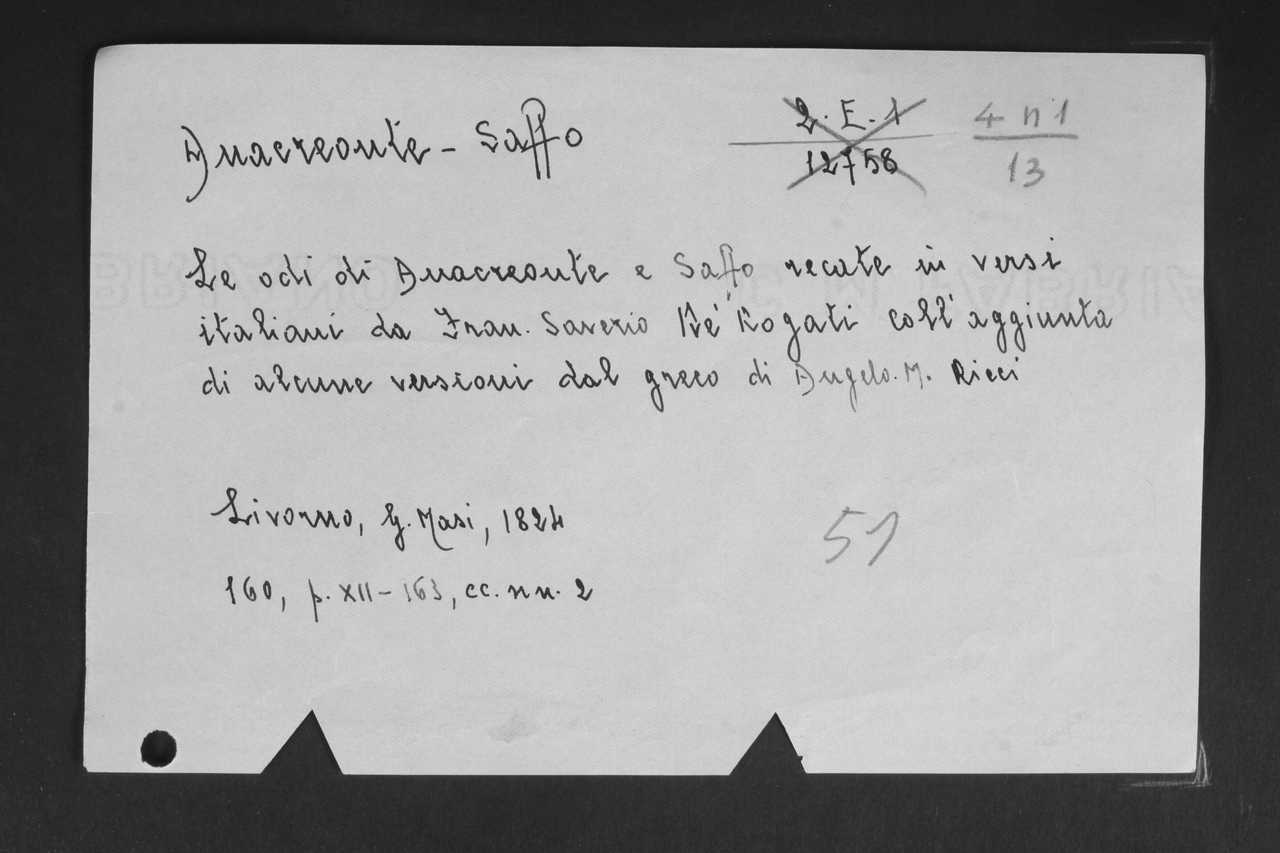 Anacreonte - Saffo
2. E. 1
12758
4 n 1
13
Le odi di Anacreonte e Saffo recate in versi
italiani da Fran. Saverio De' Rogati coll'aggiunta
di alcune versioni dal greco di Angelo. M. Ricci
Livorno, G. Masi, 1824
51
160, p. XII - 163, cc. nn. 2